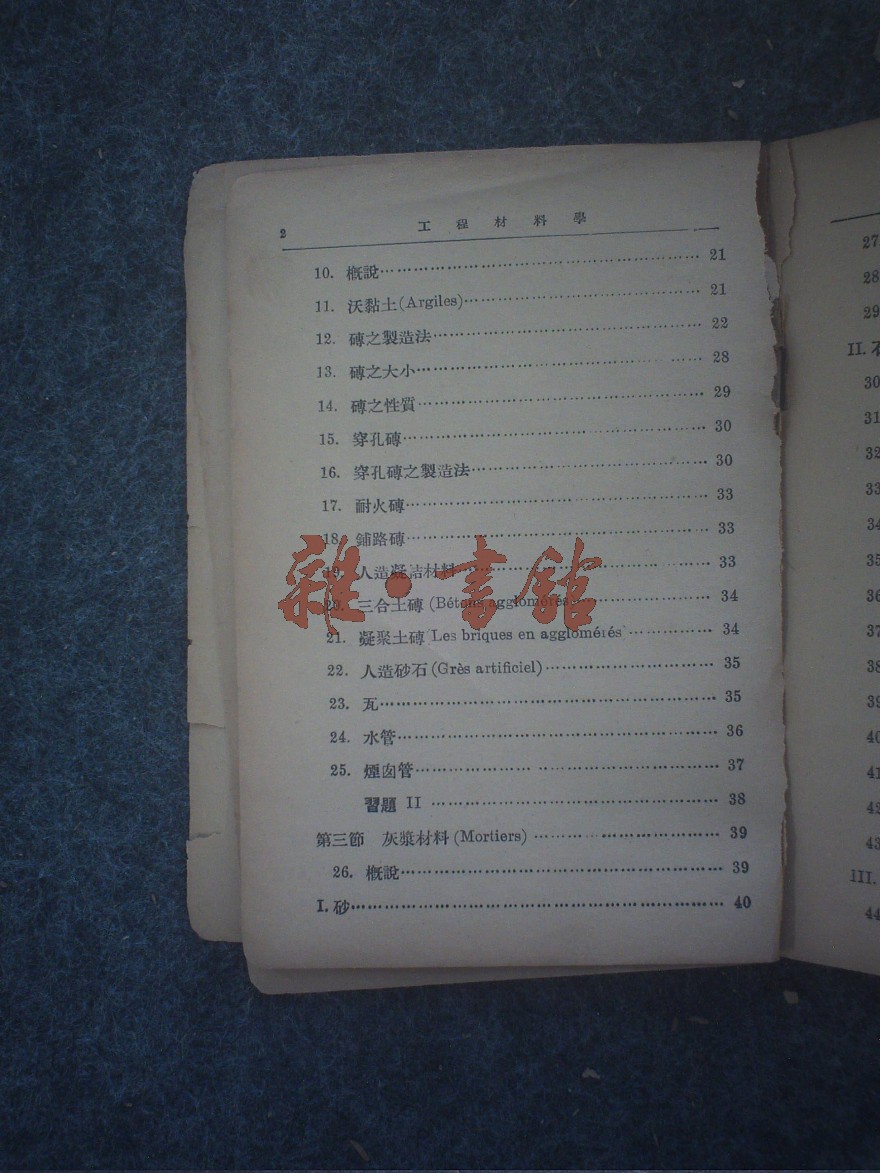 2 工程材料學
10. 概說……21
11. 沃黏土(Argiles)……21
12. 磚之製造法……22
13. 磚之大小……28
14. 磚之性質……29
15. 穿孔磚……30
16. 穿孔磚之製造法……30
17. 耐火磚……33
18. 鋪路磚……33
19. 人造凝詰材料……33
20. 三合土磚 (Bétons agglomérés)……34
21. 凝聚土磚(Les briques en agglomérés)……34
22. 人造砂石(Grès artificiel)……35
23. 瓦……35
24. 水管……36
25. 煙囪管……37
習題 II……38
第三節 灰漿材料(Mortiers)……39
26. 概說……39
I. 砂……40
雜·書舘
27
28
29
II.
30
31
32
33
34
35
36
37
38
39
40
41
42
43
III.
44